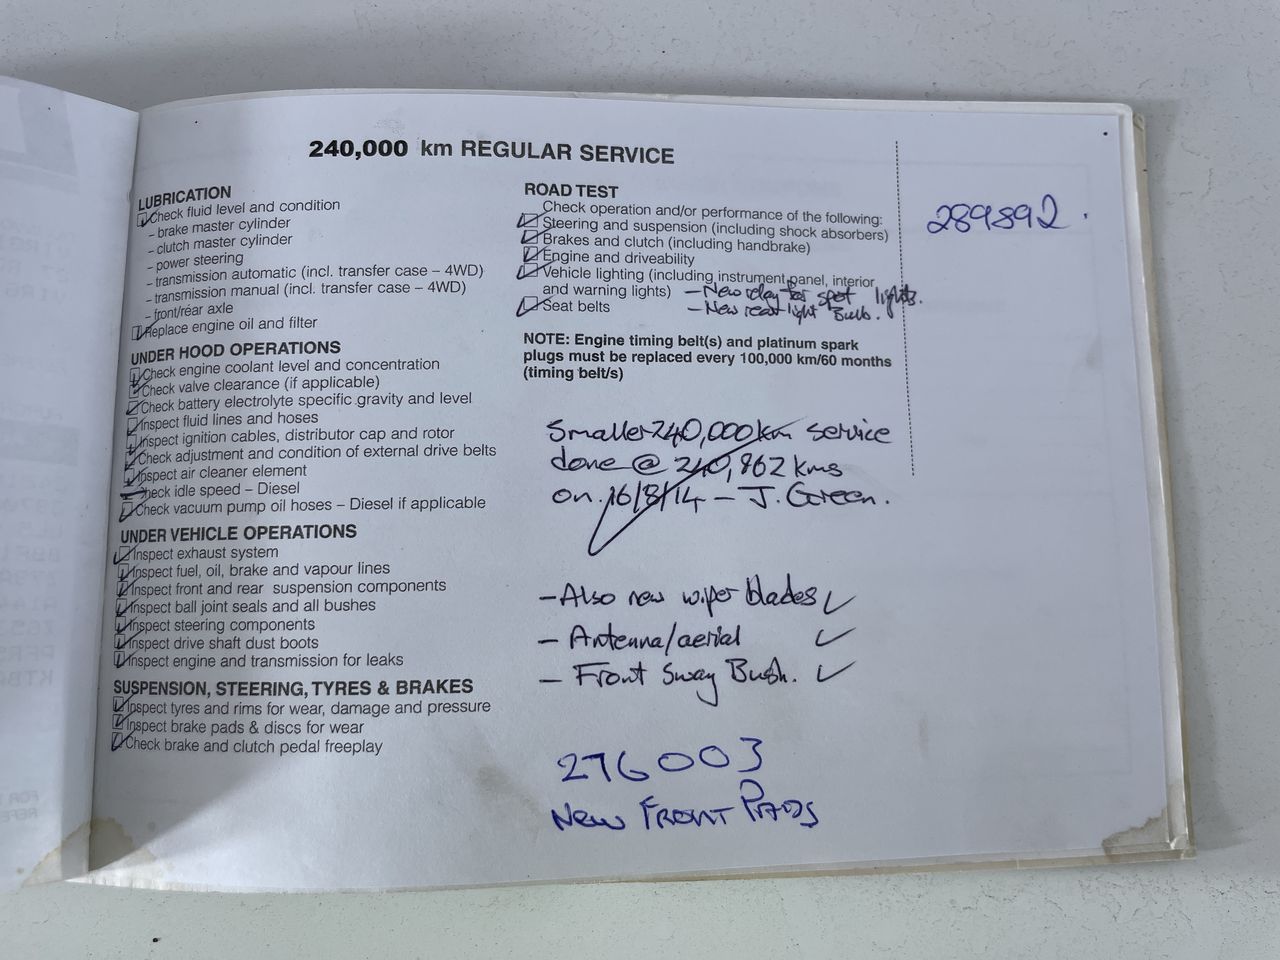 240,000 km REGULAR SERVICE
LUBRICATION
Check fluid level and condition
- brake master cylinder
- clutch master cylinder
- power steering
- transmission automatic (incl. transfer case – 4WD)
- transmission manual (incl. transfer case – 4WD)
- front/réar axle
Replace engine oil and filter
UNDER HOOD OPERATIONS
Check engine coolant level and concentration
Check valve clearance (if applicable)
Check battery electrolyte specific gravity and level
Inspect fluid lines and hoses
Inspect ignition cables, distributor cap and rotor
Check adjustment and condition of external drive belts
Inspect air cleaner element
Check idle speed – Diesel
Check vacuum pump oil hoses – Diesel if applicable
UNDER VEHICLE OPERATIONS
Inspect exhaust system
Inspect fuel, oil, brake and vapour lines
Inspect front and rear suspension components
Inspect ball joint seals and all bushes
Inspect steering components
Inspect drive shaft dust boots
Inspect engine and transmission for leaks
SUSPENSION, STEERING, TYRES & BRAKES
Inspect tyres and rims for wear, damage and pressure
Inspect brake pads & discs for wear
Check brake and clutch pedal freeplay
ROAD TEST
Check operation and/or performance of the following:
Steering and suspension (including shock absorbers)
Brakes and clutch (including handbrake)
Engine and driveability
Vehicle lighting (including instrument panel, interior
and warning lights) - New relay for spot lights.
Seat belts - New rear light Bulb.
NOTE: Engine timing belt(s) and platinum spark
plugs must be replaced every 100,000 km/60 months
(timing belt/s)
Smaller 240,000km service
done @ 240,862 kms
on 16/8/14 – J. Green.
- Also new wiper blades ✓
- Antenna/aerial ✓
- Front Sway Bush. ✓
276003
New Front Pads
289892.